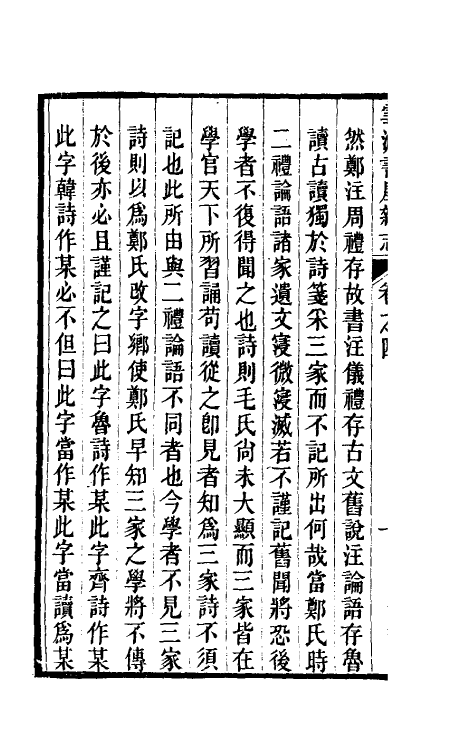 卷之四
然鄭注周禮存故書注儀禮存古文舊說注論語存魯
讀古讀獨於詩箋采三家而不記所出何哉當鄭氏時
二禮論語諸家遺文寖微寖滅若不謹記舊聞將恐後
學者不復得聞之也詩則毛氏尙未大顯而三家皆在
學官天下所習誦苟讀從之卽見者知爲三家詩不須
記也此所由與二禮論語不同者也今學者不見三家
詩則以爲鄭氏改字鄕使鄭氏早知三家之學將不傳
於後亦必且謹記之曰此字魯詩作某此字齊詩作某
此字韓詩作某必不但曰此字當作某此字當讀爲某